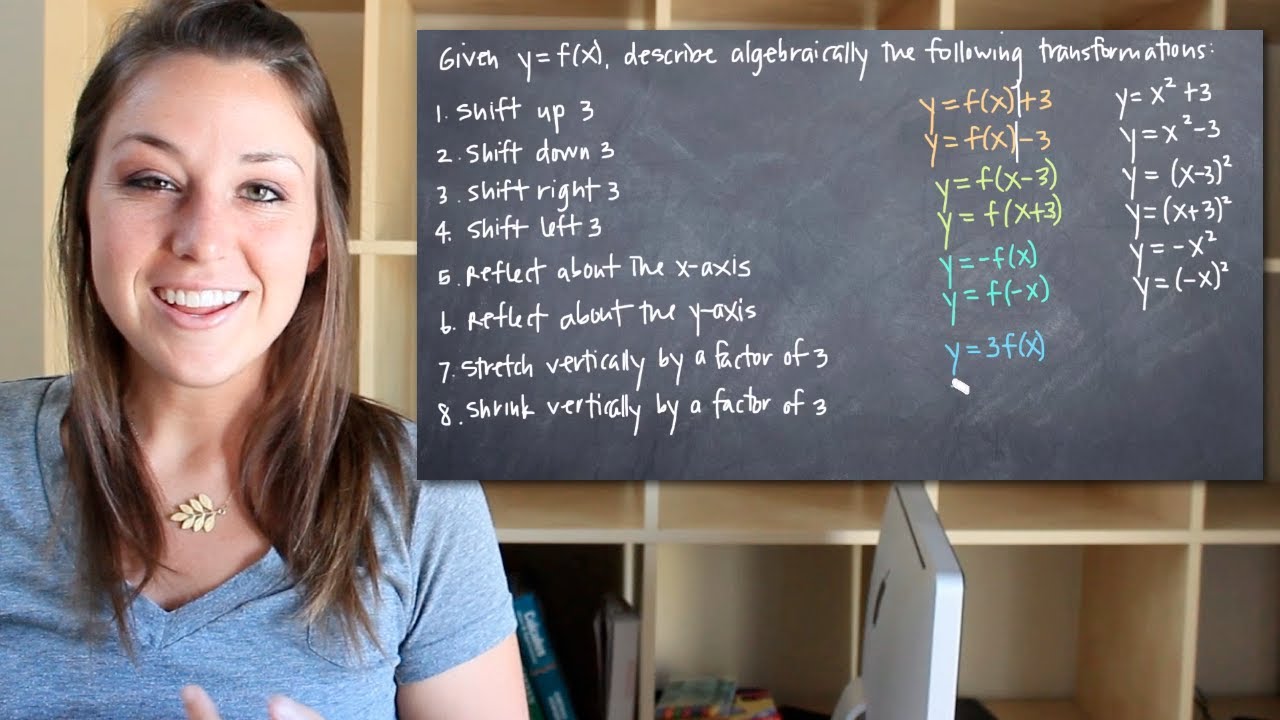 Given y=f(x), describe algebraically the following transformations:
1. shift up 3 y=f(x)+3 y=x²+3
2. shift down 3 y=f(x)-3 y=x²-3
3. shift right 3 y=f(x-3) y=(x-3)²
4. shift left 3 y=f(x+3) y=(x+3)²
5. reflect about the x-axis y=-f(x) y=-x²
6. reflect about the y-axis y=f(-x) y=(-x)²
7. stretch vertically by a factor of 3 y=3f(x)
8. shrink vertically by a factor of 3
Calculus